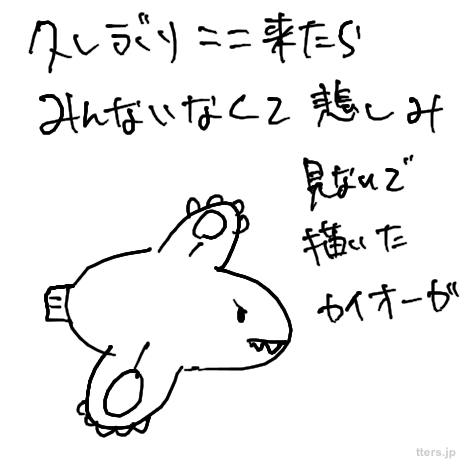 久しぶりにここ来たら
みんないなくて悲しみ
見ないで
描いた
カイオーガ
tters.jp